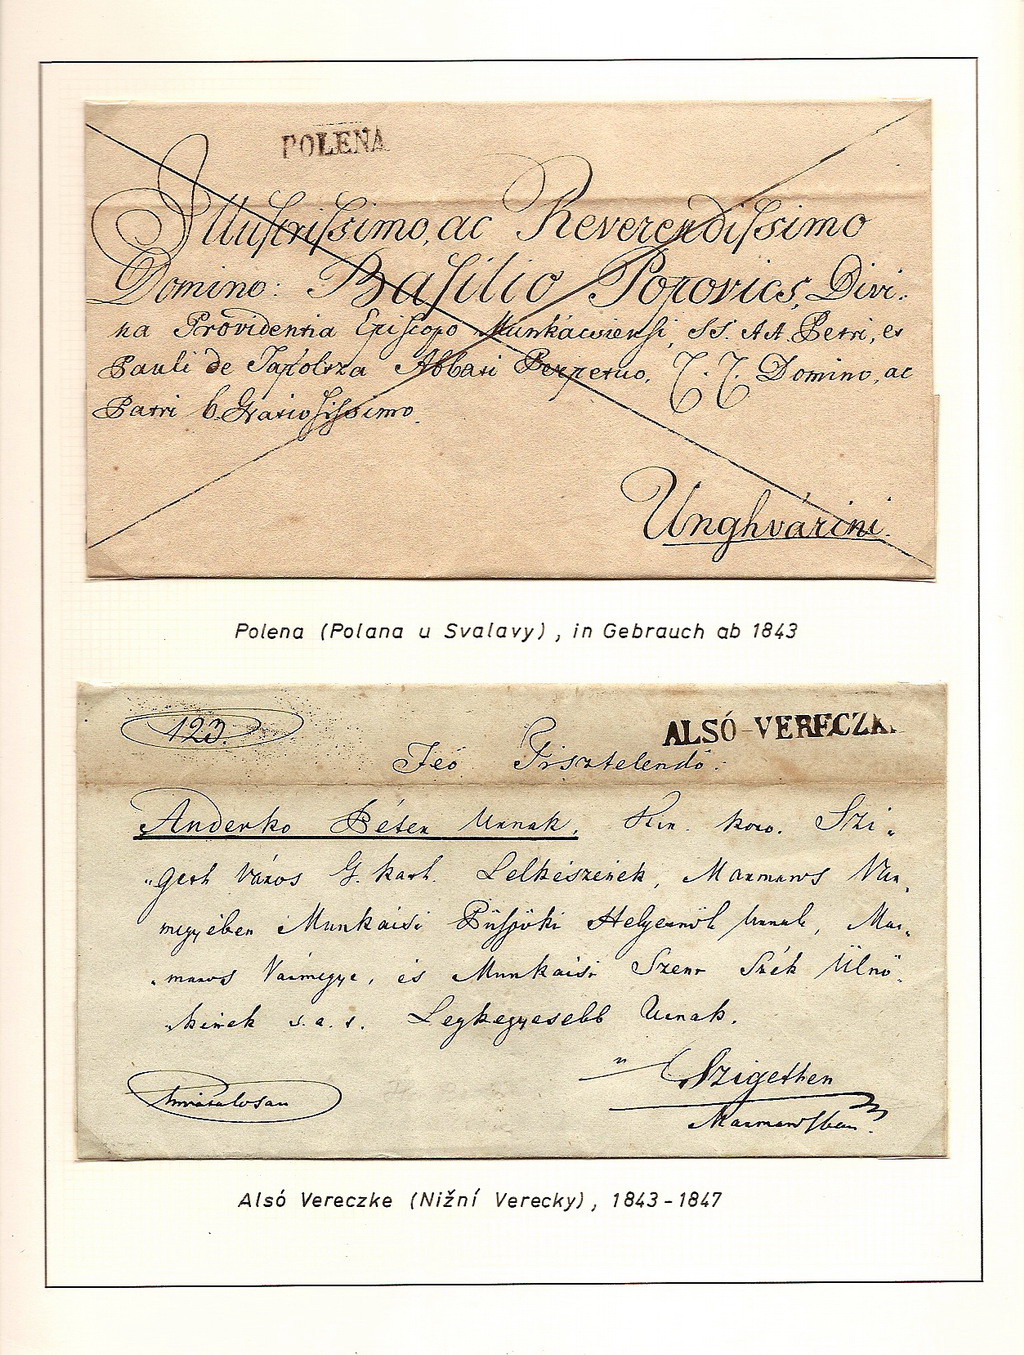 POLENA
Illustrissimo, ac Reverendissimo
Domino: Basilio Popovics, Divi:
na Providentia Episcopo Munkácsiensi, SS. A.A. Petri, et
Pauli de Tapoltza Abbati Perpetuo, T. T. Domino, ac
Patri b. Gratiosissimo.
Unghvárini.
Polena (Polana u Svalavy), in Gebrauch ab 1843
123.
ALSÓ-VERECZK
Feő Tisztelendő:
Anderko Péter Urnak, Kir. kor. Szi-
geth Város G. kath. Lelkészének, Marmaros Vár,
megyében Munkácsi Püspöki Helyernök Urnak, Mar-
maros Vármegye, és Munkácsi Szent Szék Ülnö-
kének s.a.t. Legkegyesebb Urnak.
Szigethen
Marmarosban.
Alsó Vereczke (Nižní Verecky), 1843-1847